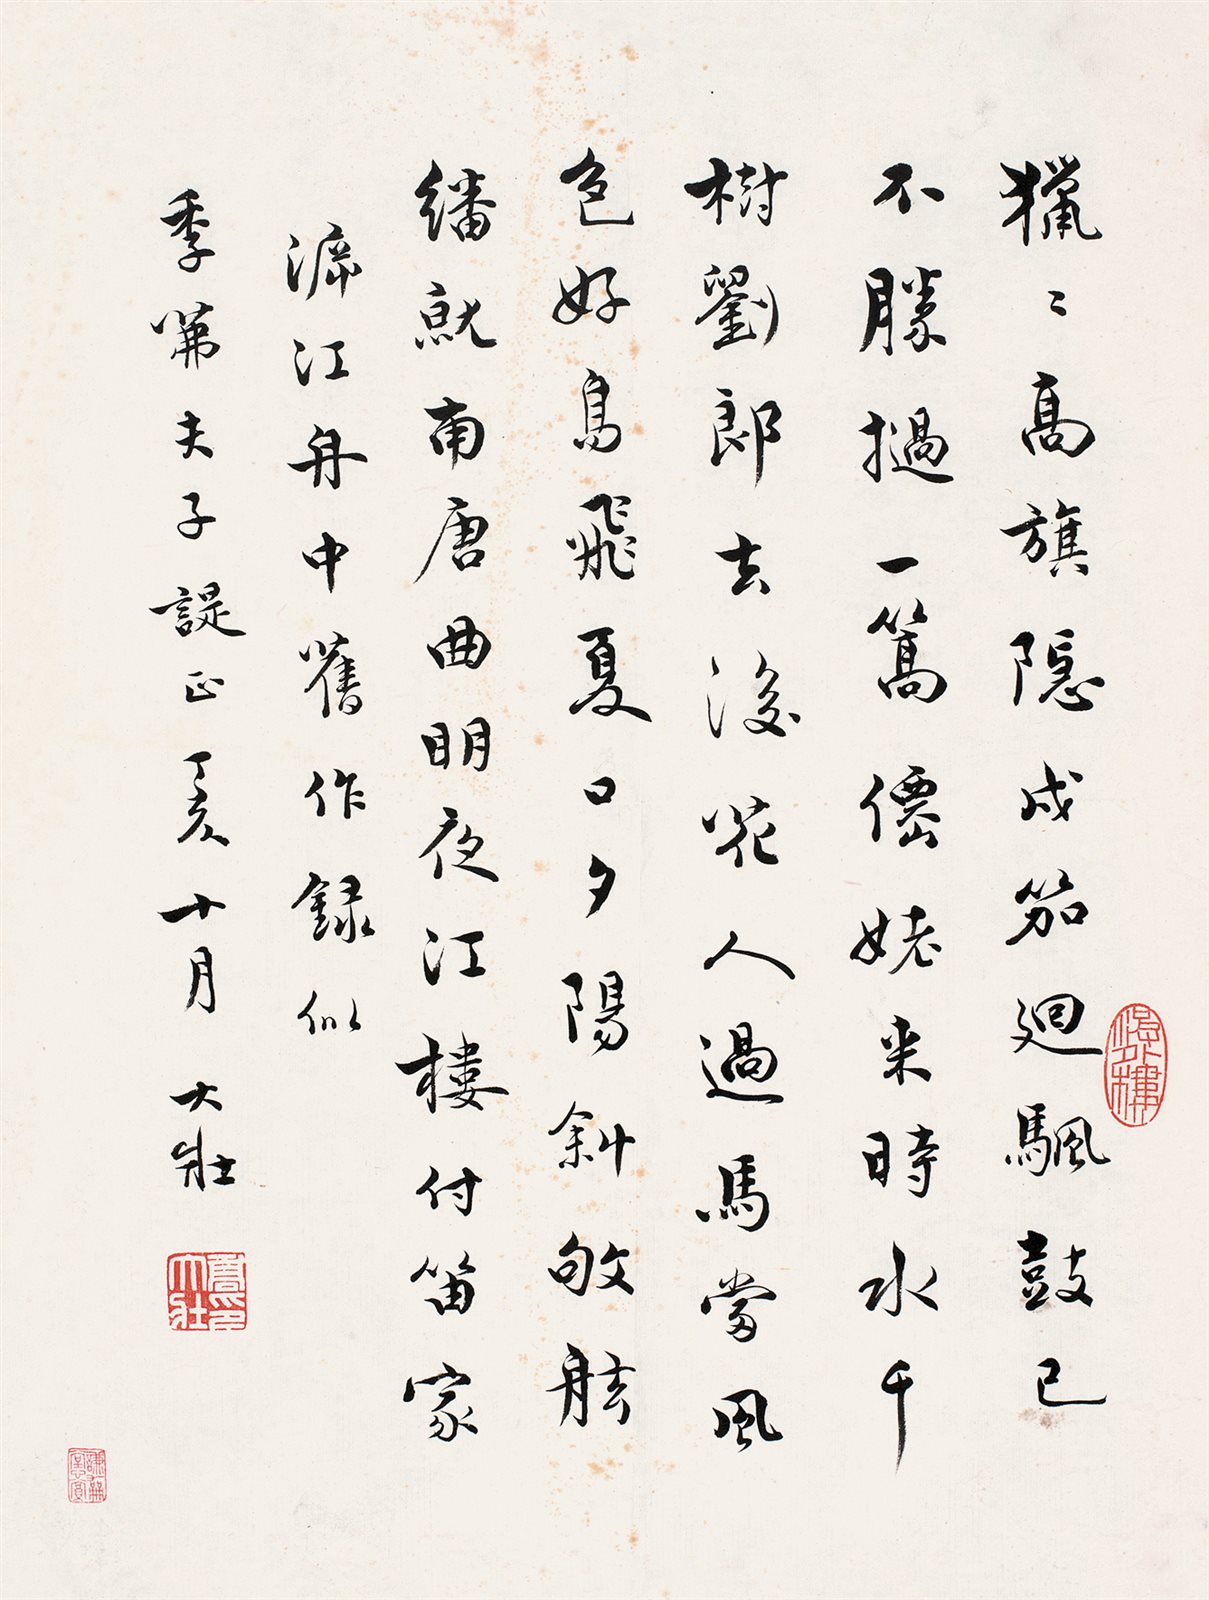 獵〻高旗隱戍笳迴颿鼓已
不勝撾一篙僊姥来時水千
樹劉郎去後花人過馬當風
色好鳥飛夏口夕陽斜敂舷
繙就南唐曲明夜江樓付笛家
江舟中舊作録似
季第夫子諟正丁亥十月 大壯